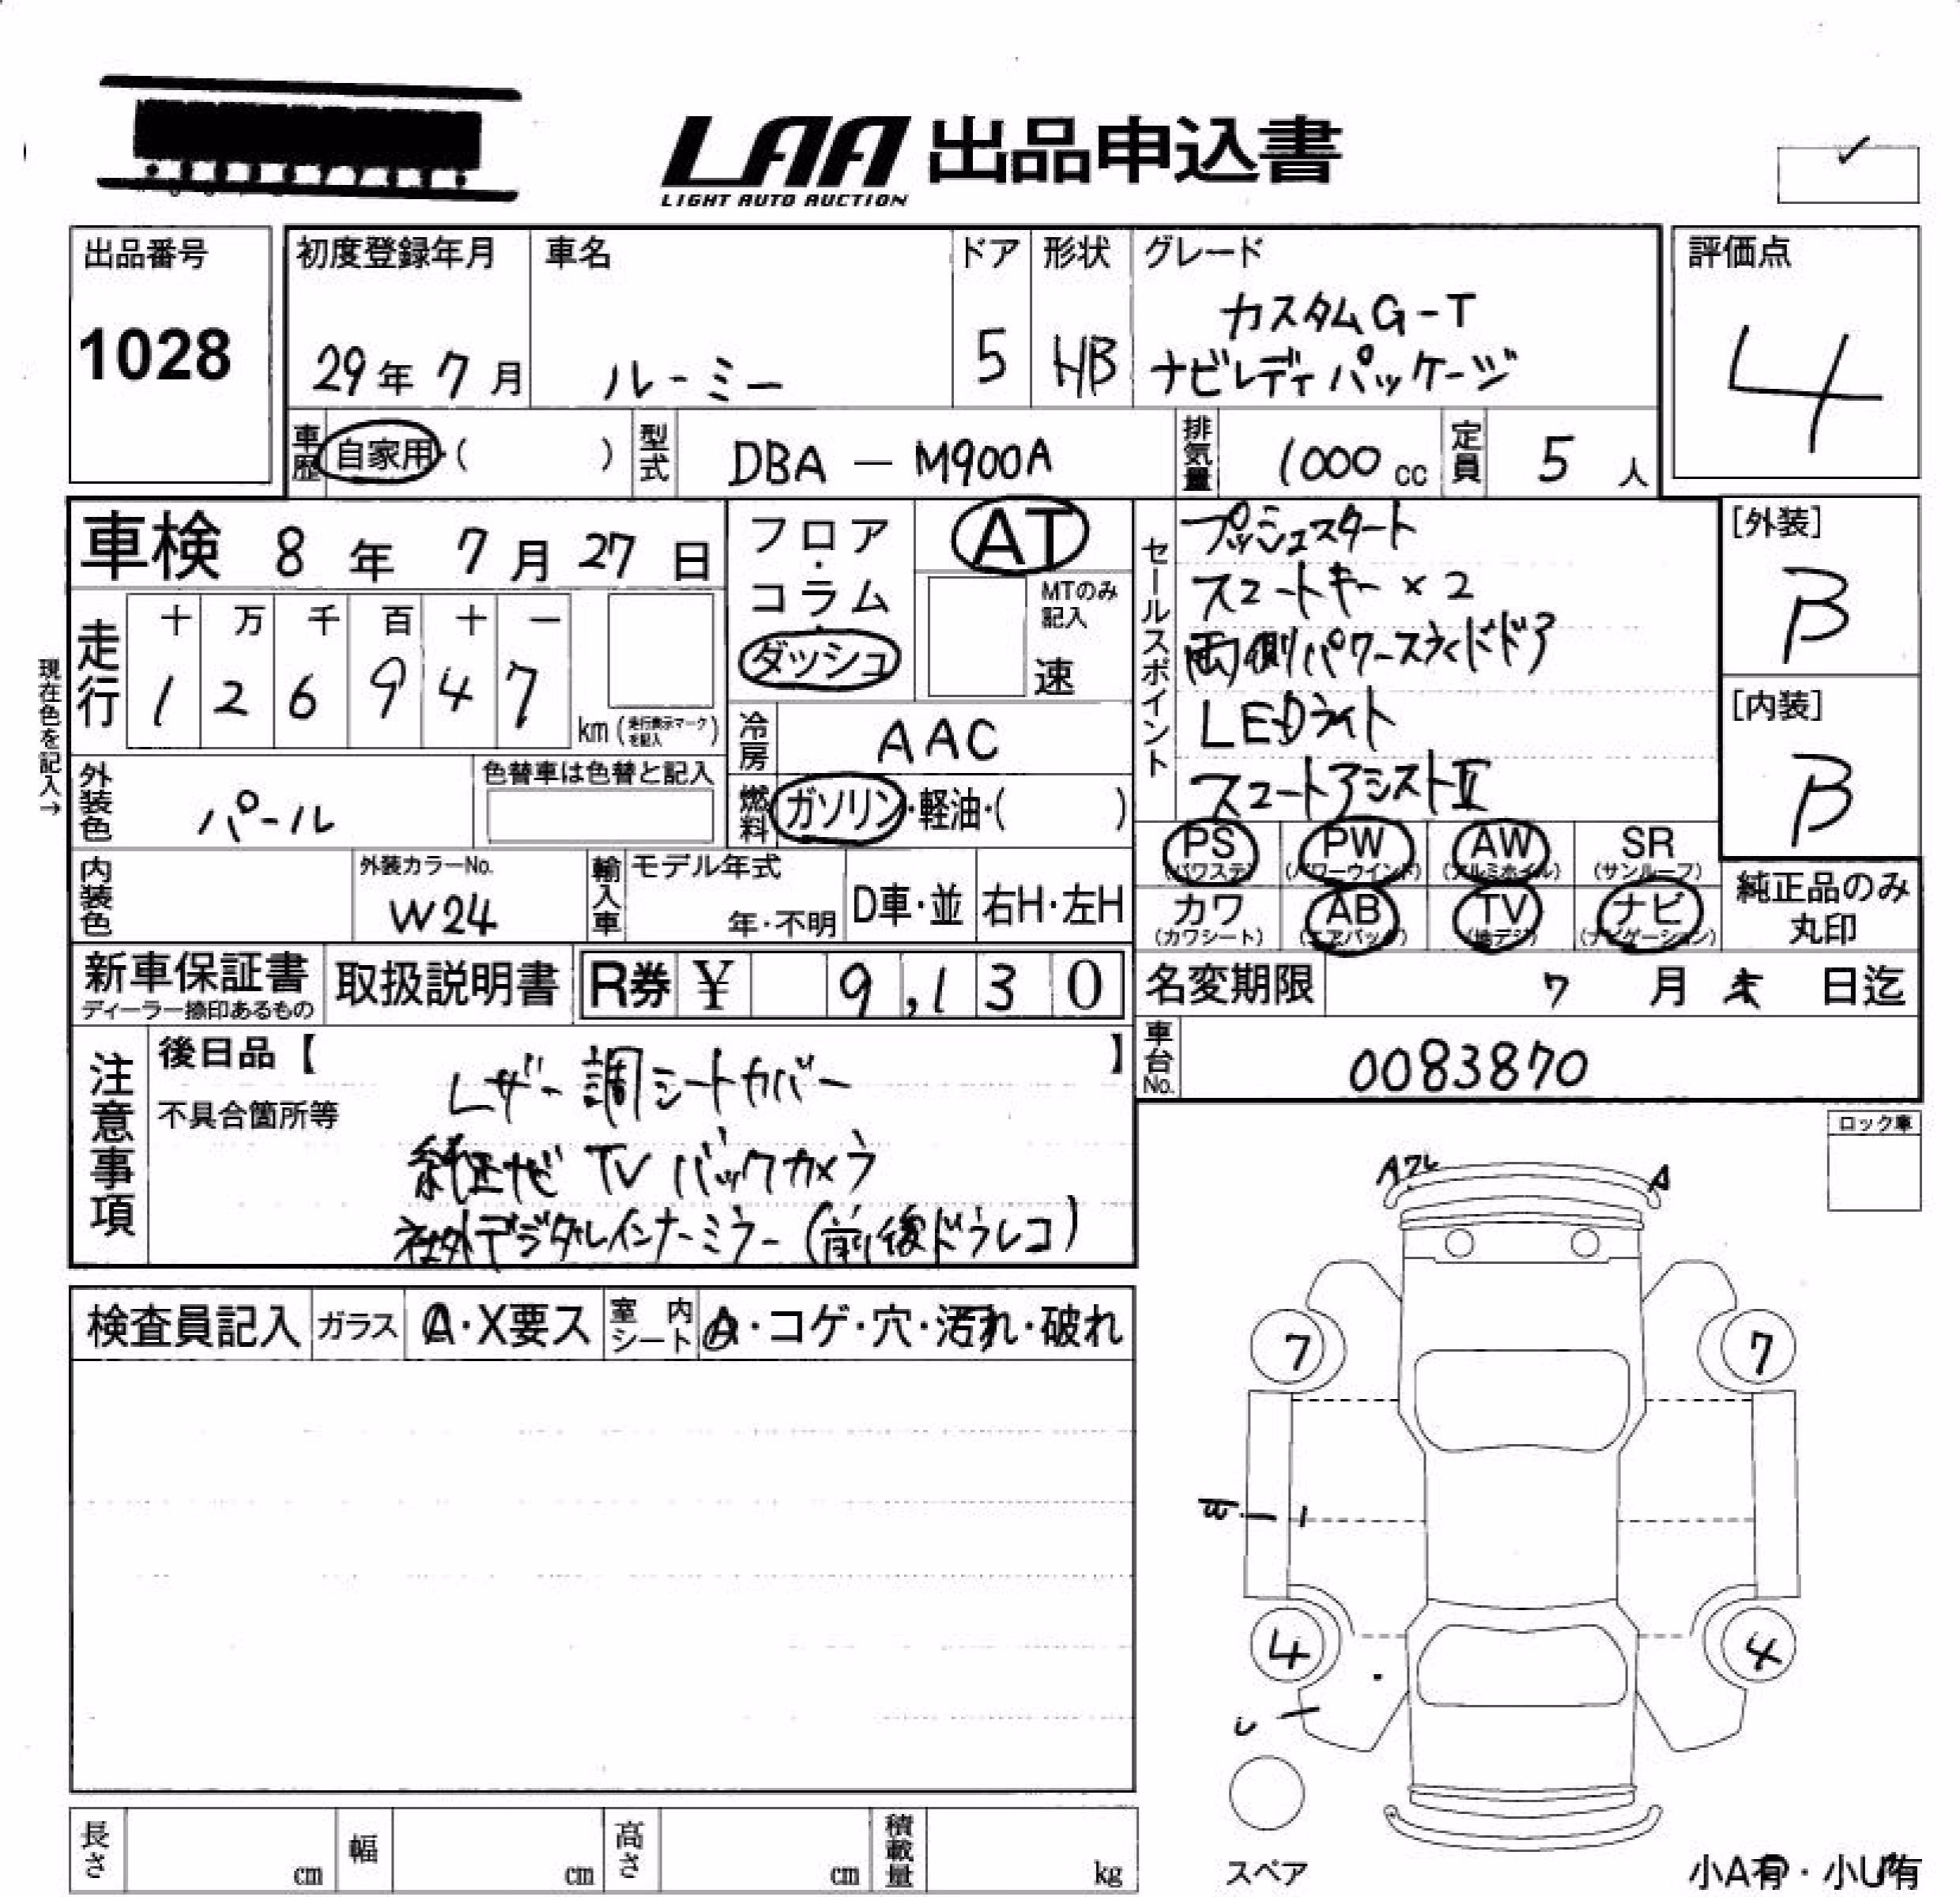 LAA 出品申込書
LIGHT AUTO AUCTION
出品番号
1028
初度登録年月
29年 7月
車名
ルーミー
ドア
5
形状
HB
グレード
カスタムG-T
ナビレディパッケージ
評価点
4
車歴 自家用・( )
型式 DBA - M900A
排気量 1000cc
定員 5人
車検 8年 7月 27日
フロア・コラム・ダッシュ
AT
MTのみ記入
速
セールスポイント
プッシュスタート
スマートキー×2
両側パワースライドドア
LEDライト
スマートアシストⅡ
[外装]
B
[内装]
B
現在色を記入→
走行 十 万 千 百 十 一
1 2 6 9 4 7
km (走行表示マークを記入)
冷房 AAC
外装色 パール
色替車は色替と記入
燃料 ガソリン・軽油・( )
PS (パワステ) PW (パワーウインド) AW (アルミホイル) SR (サンルーフ)
カワ (カワシート) AB (エアバッグ) TV (地デジ) ナビ (ナビゲーション)
純正品のみ丸印
内装色
外装カラーNo.
W24
輸入車 モデル年式
年・不明
D車・並 右H・左H
新車保証書
ディーラー捺印あるもの
取扱説明書
R券 ¥ 9,130
名変期限 7月 末日迄
車台No. 0083870
注意事項
後日品【 】
不具合箇所等
レザー調シートカバー
純正ナビ TV バックカメラ
社外デジタルインナーミラー(前後ドラレコ)
ロック車
Aフレ A
検査員記入 ガラス A・X要ス 室内シート A・コゲ・穴・汚れ・破れ
7 7
4 4
スペア
長さ cm 幅 cm 高さ cm 積載量 kg
小A有・小U有